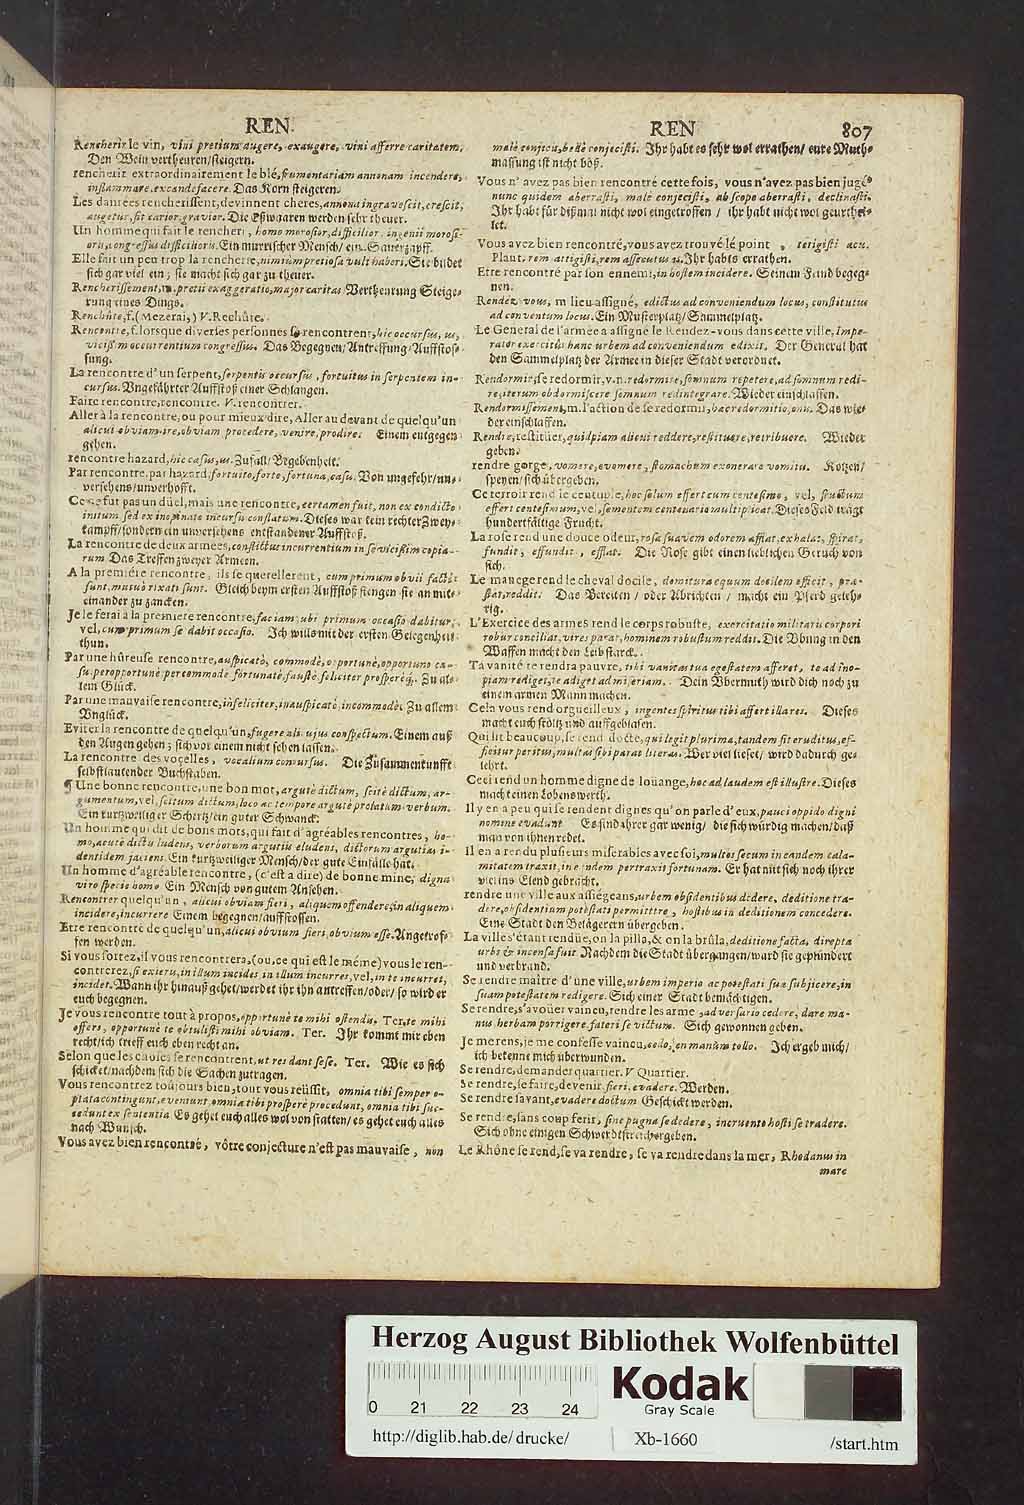 REN.
Rencherir le vin, vini pretium augere, exaugere, vini afferre caritatem.
Den Wein vertheuren/steigern.
rencherir extraordinairement le blé, frumentariam annonam incendere,
inflammare, excandefacere. Das Korn steigeren.
Les danrées rencherissent, devinnent chéres, annona ingravescit, crescit,
augetur, fit carior, gravior. Die Eßwaren werden sehr theuer.
Un homme qui fait le rencheri, homo morosior, difficilior, ingenii morosi-
oris, congressus difficilioris. Ein murrischer Mensch/ ein Sauerzapff.
Elle fait un peu trop la rencherie, nimium pretiosa vult haberi. Sie bildet
sich gar viel ein; sie macht sich gar zu theuer.
Rencherissement, m. pretii exaggeratio, major caritas Vertheurung Steige-
rung eines Dings.
Renchûte, f. (Mezerai,) V. Rechûte.
Rencontre, f. lorsque diverses personnes se rencontrent, hic occursus, us,
vicissim occurrentium congressus. Das Begegnen/Antreffung/Auffstos-
sung.
La rencontre d'un serpent, serpentis occursus, fortuitus in serpentem in-
cursus. Ungefährter Auffstoß einer Schlangen.
Faire rencontre, rencontre. V. rencontrer.
Aller à la rencontre, ou pour mieux dire, Aller au devant de quelqu'un
alicui obviam ire, obviam procedere, venire, prodire. Einem entgegen
gehen.
rencontre hazard, hic casus, us. Zufall/Begebenheit.
Par rencontre, par hazard, fortuito, forte, fortuna, casu. Von ungefehr/un-
versehens/unverhofft.
Ce ne fut pas un düel, mais une rencontre, certamen fuit, non ex condicto
initum sed ex inopinate incursu conflatum. Dieses war kein rechter Zwey-
kampff/sondern ein unversehens entstandener Auffstoß.
La rencontre de deux armées, conflictus incurrentium in se vicißim copia-
rum Das Treffen zweyer Armeen.
A la premiére rencontre, ils se querellerent, cum primum obvii facti
sunt, mutuò rixati sunt. Gleich beym ersten Auffstoß fiengen sie an mit-
einander zu zancken.
Je le ferai à la premiere rencontre, faciam ubi primum occasio dabitur,
vel, cum primum se dabit occasio. Ich wills mit der ersten Gelegenheit
thun.
Par une hûreuse rencontre, auspicatò, commodè, opportunè, opportuno ca-
su, peropportunè percommodè fortunatè, faustè, feliciter prospereq;. Zu al-
lem Glück.
Par une mauvaise rencontre, infeliciter, inauspicatò, incommodè. Zu allem
Unglück.
Eviter la rencontre de quelqu'un, fugere alicujus conspectum. Einem auß
den Augen gehen; sich vor einem nicht sehen lassen.
La rencontre des voyelles, vocalium concursus. Die Zusammenkunfft
selbstlautender Buchstaben.
¶ Une bonne rencontre, une bon mot, argutè dictum, scitè dictum, ar-
gumentum, vel, scitum dictum, loco ac tempore argutè prolatum verbum.
Ein kurtzweiliger Schertz/ein guter Schwanck.
Un homme qui dit de bons mots, qui fait d'agréables rencontres, ho-
mo, acutè dictu ludens, verborum argutiis eludens, dictorum argutias i-
dentidem jaciens. Ein kurtzweiliger Mensch/der gute Einfälle hat.
Un homme d'agréable rencontre, (c'est a dire) de bonne mine, digna
viro specie homo Ein Mensch von gutem Ansehen.
Rencontrer quelqu'un, alicui obviam fieri, aliquem offendere; in aliquem
incidere, incurrere Einem begegnen/auffstossen.
Etre rencontré de quelqu'un, alicui obvium fieri, obvium esse. Angetrof-
fen werden.
Si vous sortez, il vous rencontrera, (ou, ce qui est le méme) vous le ren-
contrerez, si exieru, in illum incides, in illum incurres, vel, in te incurret,
incidet. Wann ihr hinauß gehet/werdet ihr ihn antreffen/oder/ so wird er
euch begegnen.
Je vous rencontre tout à propos, opportunè te mihi ostendis. Ter. te mihi
offers, opportunè te obtulisti mihi obviam. Ter. Ihr kommt mir eben
recht/ich treff euch eben recht an.
Selon que les choses se rencontrent, ut res dant sese. Ter. Wie es sich
schicket/nachdem sich die Sachen zutragen.
Vous rencontrez toujours bien, tout vous reüssit, omnia tibi semper o-
ptata contingunt, eveniunt, omnia tibi prosperè procedunt, omnia tibi suc-
cedunt ex sententia Es gehet euch alles wol von statten/ es gehet euch alles
nach Wunsch.
Vous avez bien rencontré, vôtre conjecture n'est pas mauvaise, non
REN 807
malè conjicis, bellè conjecisti. Ihr habt es sehr wol errathen/ eure Muth-
massung ist nicht böß.
Vous n'avez pas bien rencontré cette fois, vous n'avez pas bien jugé
nunc quidem aberrasti, malè conjecisti, ab scopo aberrasti, declinasti.
Ihr habt für dißmal nicht wol eingetroffen / ihr habt nicht wol geurthei-
let.
Vous avez bien rencontré, vous avez trouvé lé point, tetigisti acu.
Plaut. rem attigisti, rem assecutus es. Ihr habts errathen.
Etre rencontré par son ennemi, in hostem incidere. Seinem Feind begeg-
nen.
Rendez-vous, m lieu assigné, edictus ad conveniendum locus, constitutus
ad conventum locus. Ein Musterplatz/Sammelplatz.
Le General de l'armée a assigné le Rendez-vous dans cette ville, Impe-
rator exercitûs hanc urbem ad conveniendum edixit. Der General hat
den Sammelplatz der Armee in dieser Stadt verordnet.
Rendormir, se redormir, v.n. redormire, somnum repetere, ad somnum redi-
re, iterum obdormiscere somnum redintegrare. Wieder einschlaffen.
Rendormissement, m. l'action de se redormir, hæc redormitio, onis. Das wie-
der einschlaffen.
Rendre, restitüer, quidpiam alieni reddere, restituere, retribuere. Wieder
geben.
rendre gorge, vomere, evomere, stomachum exonerare vomitu. Kotzen/
speyen/sich übergeben.
Ce terroir rend le centuple, hoc solum effert cum centesimo, vel, fructum
effert centesimum, vel, sementem centenario multiplicat. Dieses Feld trägt
hundertfältige Frucht.
La rose rend une douce odeur, rosa suavem odorem afflat, exhalat, spirat,
fundit, effundit, efflat. Die Rose gibt einen lieblichen Geruch von
sich.
Le manege rend le cheval docile, domitura equum docilem efficit, præ-
stat, reddit. Das Bereiten / oder Abrichten / macht ein Pferd gelehr-
rig.
L'Exercice des armes rend le corps robuste, exercitatio militaris corpori
robur conciliat, vires parat, hominem robustum reddit. Die Ubung in den
Waffen macht den Leib starck.
Ta vanité te rendra pauvre, tibi vanitas tua egestatem afferet, te ad ino-
piam rediget, te adiget ad miseriam. Dein Ubermuth wird dich noch zu
einem armen Mann machen.
Cela vous rend orgueilleux, ingentes spiritus tibi affert illa res. Dieses
macht euch stoltz und auffgeblasen.
Qui lit beaucoup, se rend docte, qui legit plurima, tandem fit eruditus, ef-
ficitur peritus, multas sibi parat literas. Wer viel lieset/ wird dadurch ge-
lehrt.
Ceci rend un homme digne de loüange, hoc ad laudem est illustre. Dieses
macht einen Lobens werth.
Il y en a peu qui se rendent dignes qu'on parle d'eux, pauci oppido digni
nomine evadunt Es sind ihrer gar wenig/ die sich würdig machen/daß
man von ihnen redet.
Il en a rendu plusieurs miserables avec soi, multos secum in eandem cala-
mitatem traxit, in eandem pertraxit fortunam. Er hat mit sich noch ihrer
viel ins Elend gebracht.
rendre une ville aux assiégeans, urbem obsidentibus dedere, deditione tra-
dere, obsidentium potestati permittere, hostibus in deditionem concedere.
Eine Stadt den Belägerern übergeben.
La ville s'étant rendüe, on la pilla, & on la brûla, deditione facta, direpta
urbs & incensa fuit Nachdem die Stadt übergangen/ward sie geplündert
und verbrand.
Se rendre maître d'une ville, urbem imperio ac potestati suæ subjicere, in
suam potestatem redigere. Sich einer Stadt bemächtigen.
Se rendre, s'avoüer vaincu, rendre les arme, adversario cedere, dare ma-
nus herbam porrigere, fateri se victum. Sich gewonnen geben.
Je me rens, je me confesse vaincu, cedo, en manûm tollo. Ich ergeb mich/
ich bekenne mich überwunden.
Se rendre, demander quartier. V Quartier.
Se rendre, se faire, devenir, fieri, evadere. Werden.
Se rendre savant, evadere doctum Geschickt werden.
Se rendre, sans coup ferir, sine pugna se dedere, incruento hosti se tradere.
Sich ohne einigen Schwerdtstreich ergeben.
Le Rhône se rend, se va rendre, se va rendre dans la mer, Rhodanus in
mare
Herzog August Bibliothek Wolfenbüttel
0 21 22 23 24
Kodak
Gray Scale
http://diglib.hab.de/drucke/ Xb-1660 /start.htm